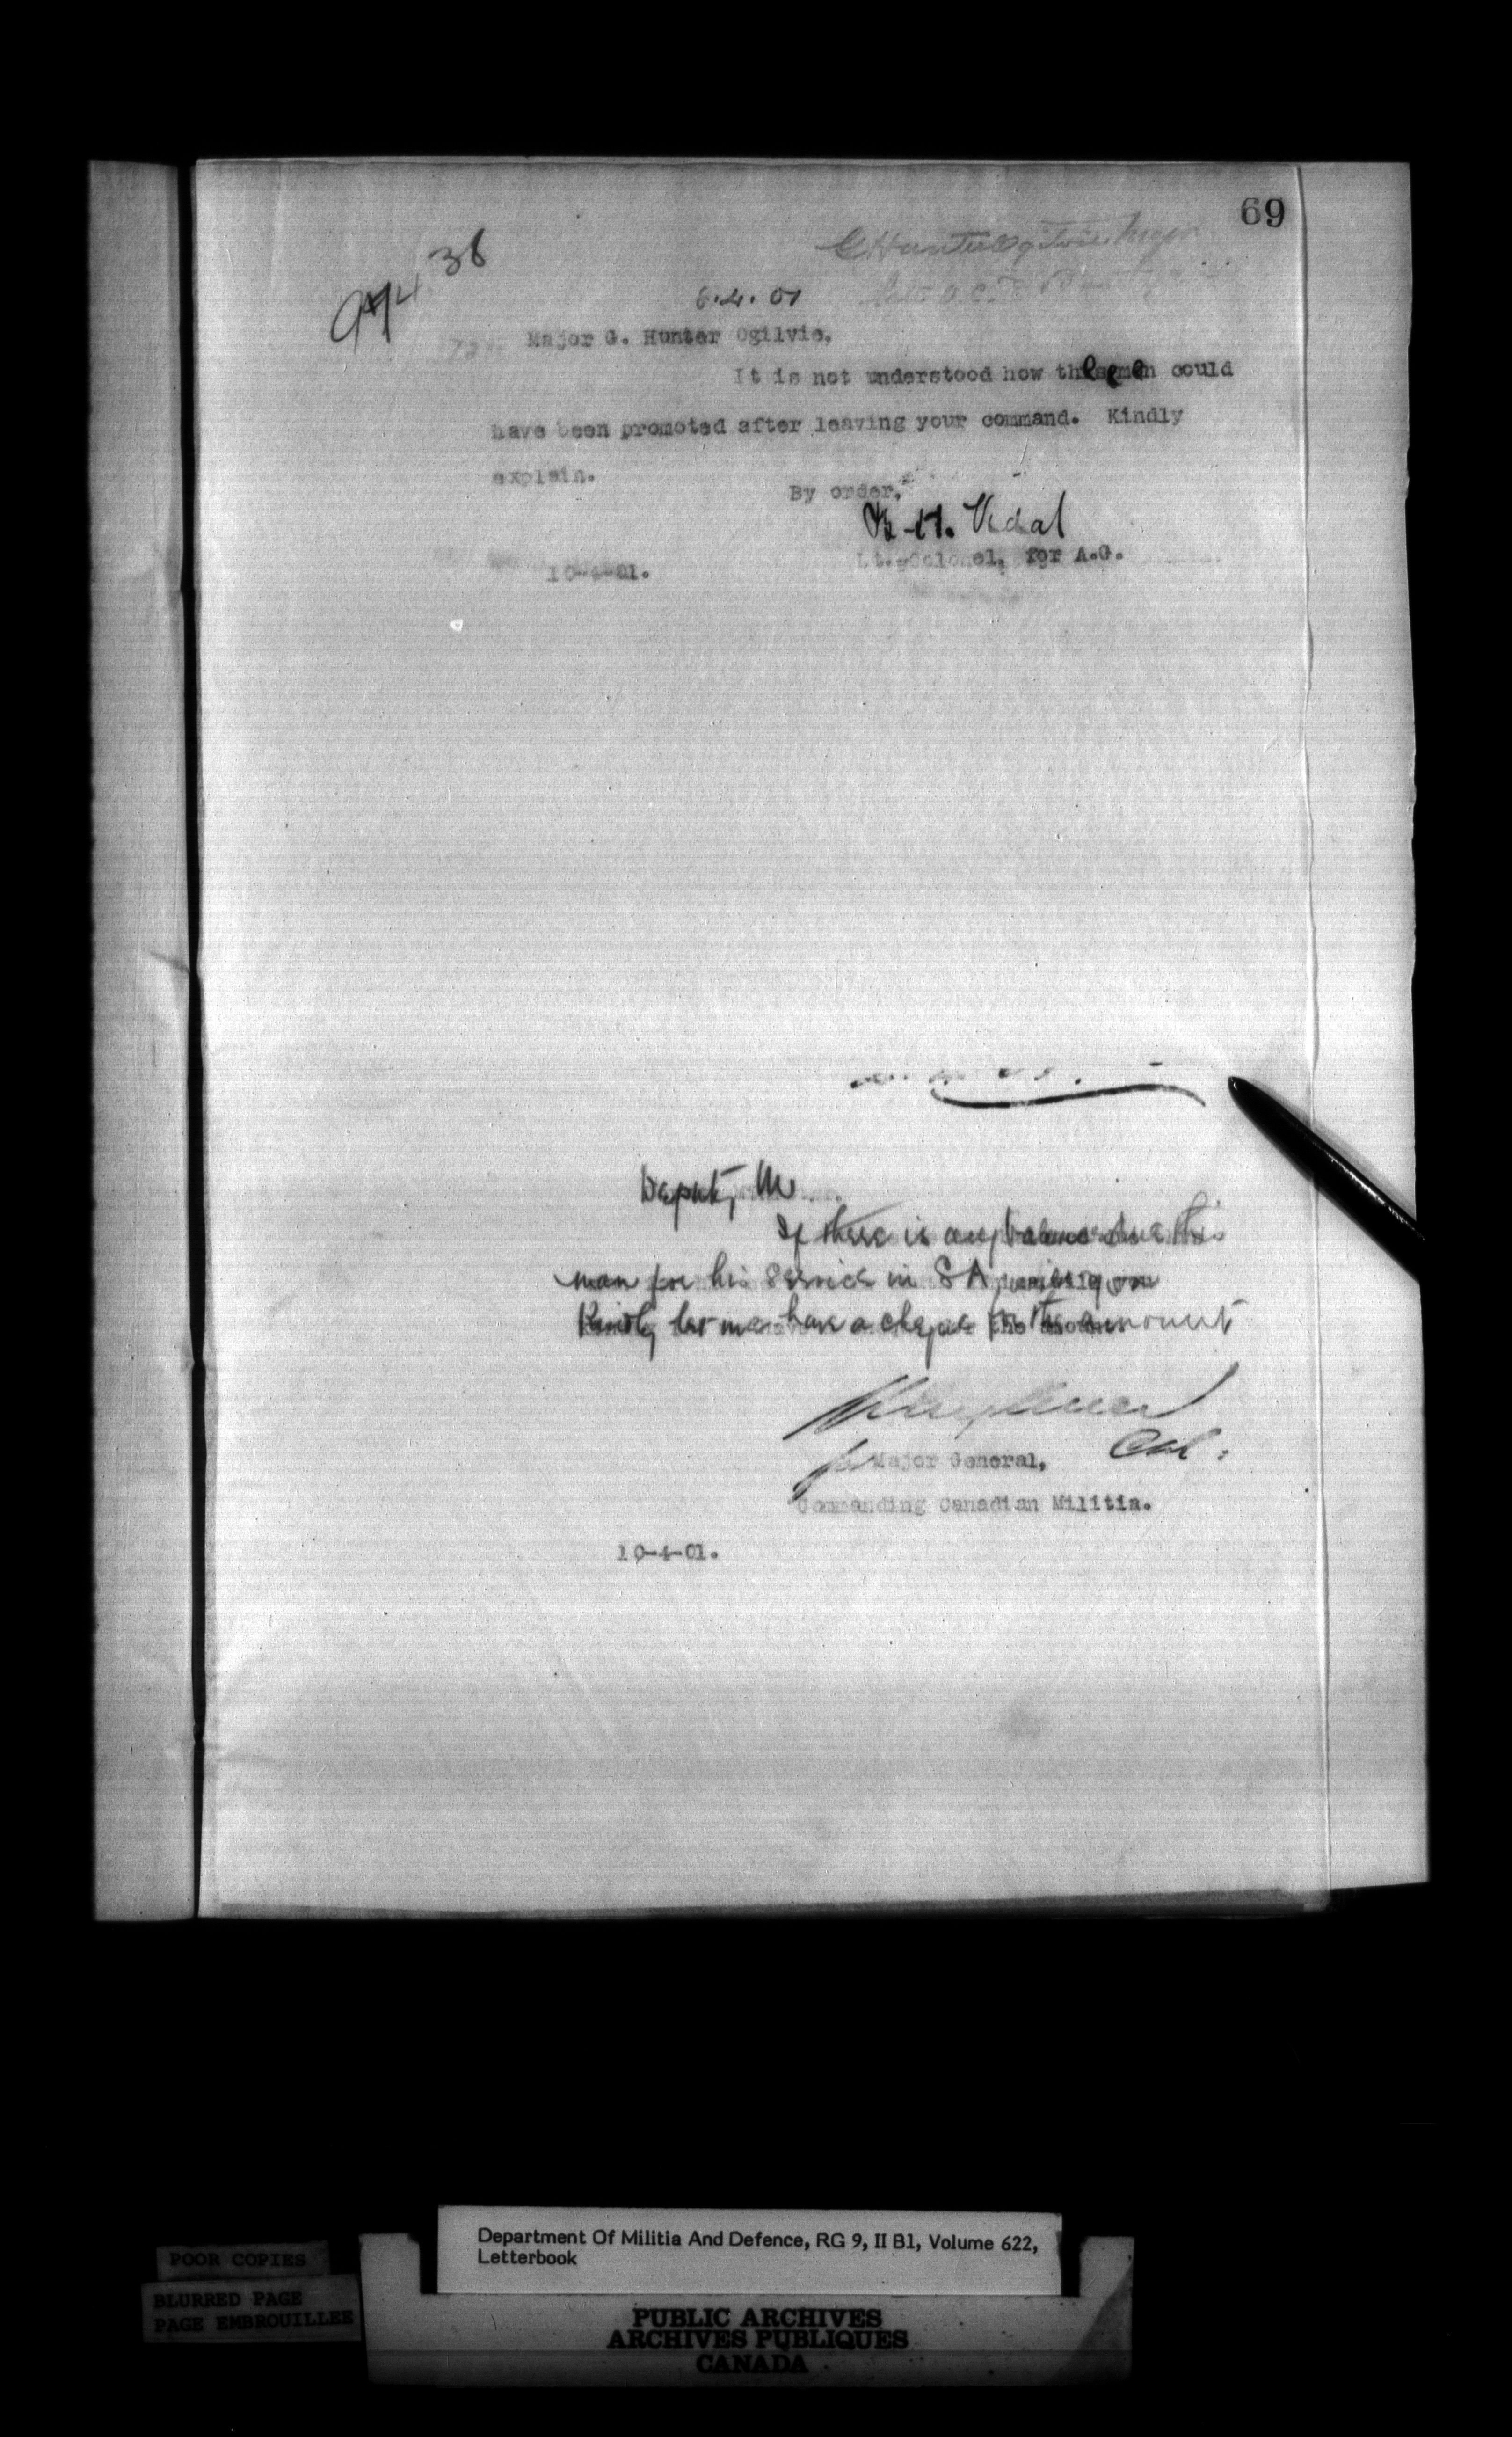 69
G Hunter Ogilvie Major
38
974
6.4.01
Major G. Hunter Ogilvie,
It is not understood how these men could
have been promoted after leaving your command. Kindly
explain.
By order,
B. H. Vidal
Lt.-Colonel, for A.G.
10-4-01.
Deputy M
If there is any balance due this
man for his service in S A, will you
Kindly let me have a cheque for the amount
Col.
for Major General,
Commanding Canadian Militia.
10-4-01.
Department Of Militia And Defence, RG 9, II B1, Volume 622,
Letterbook
POOR COPIES
BLURRED PAGE
PAGE EMBROUILLEE
PUBLIC ARCHIVES
ARCHIVES PUBLIQUES
CANADA